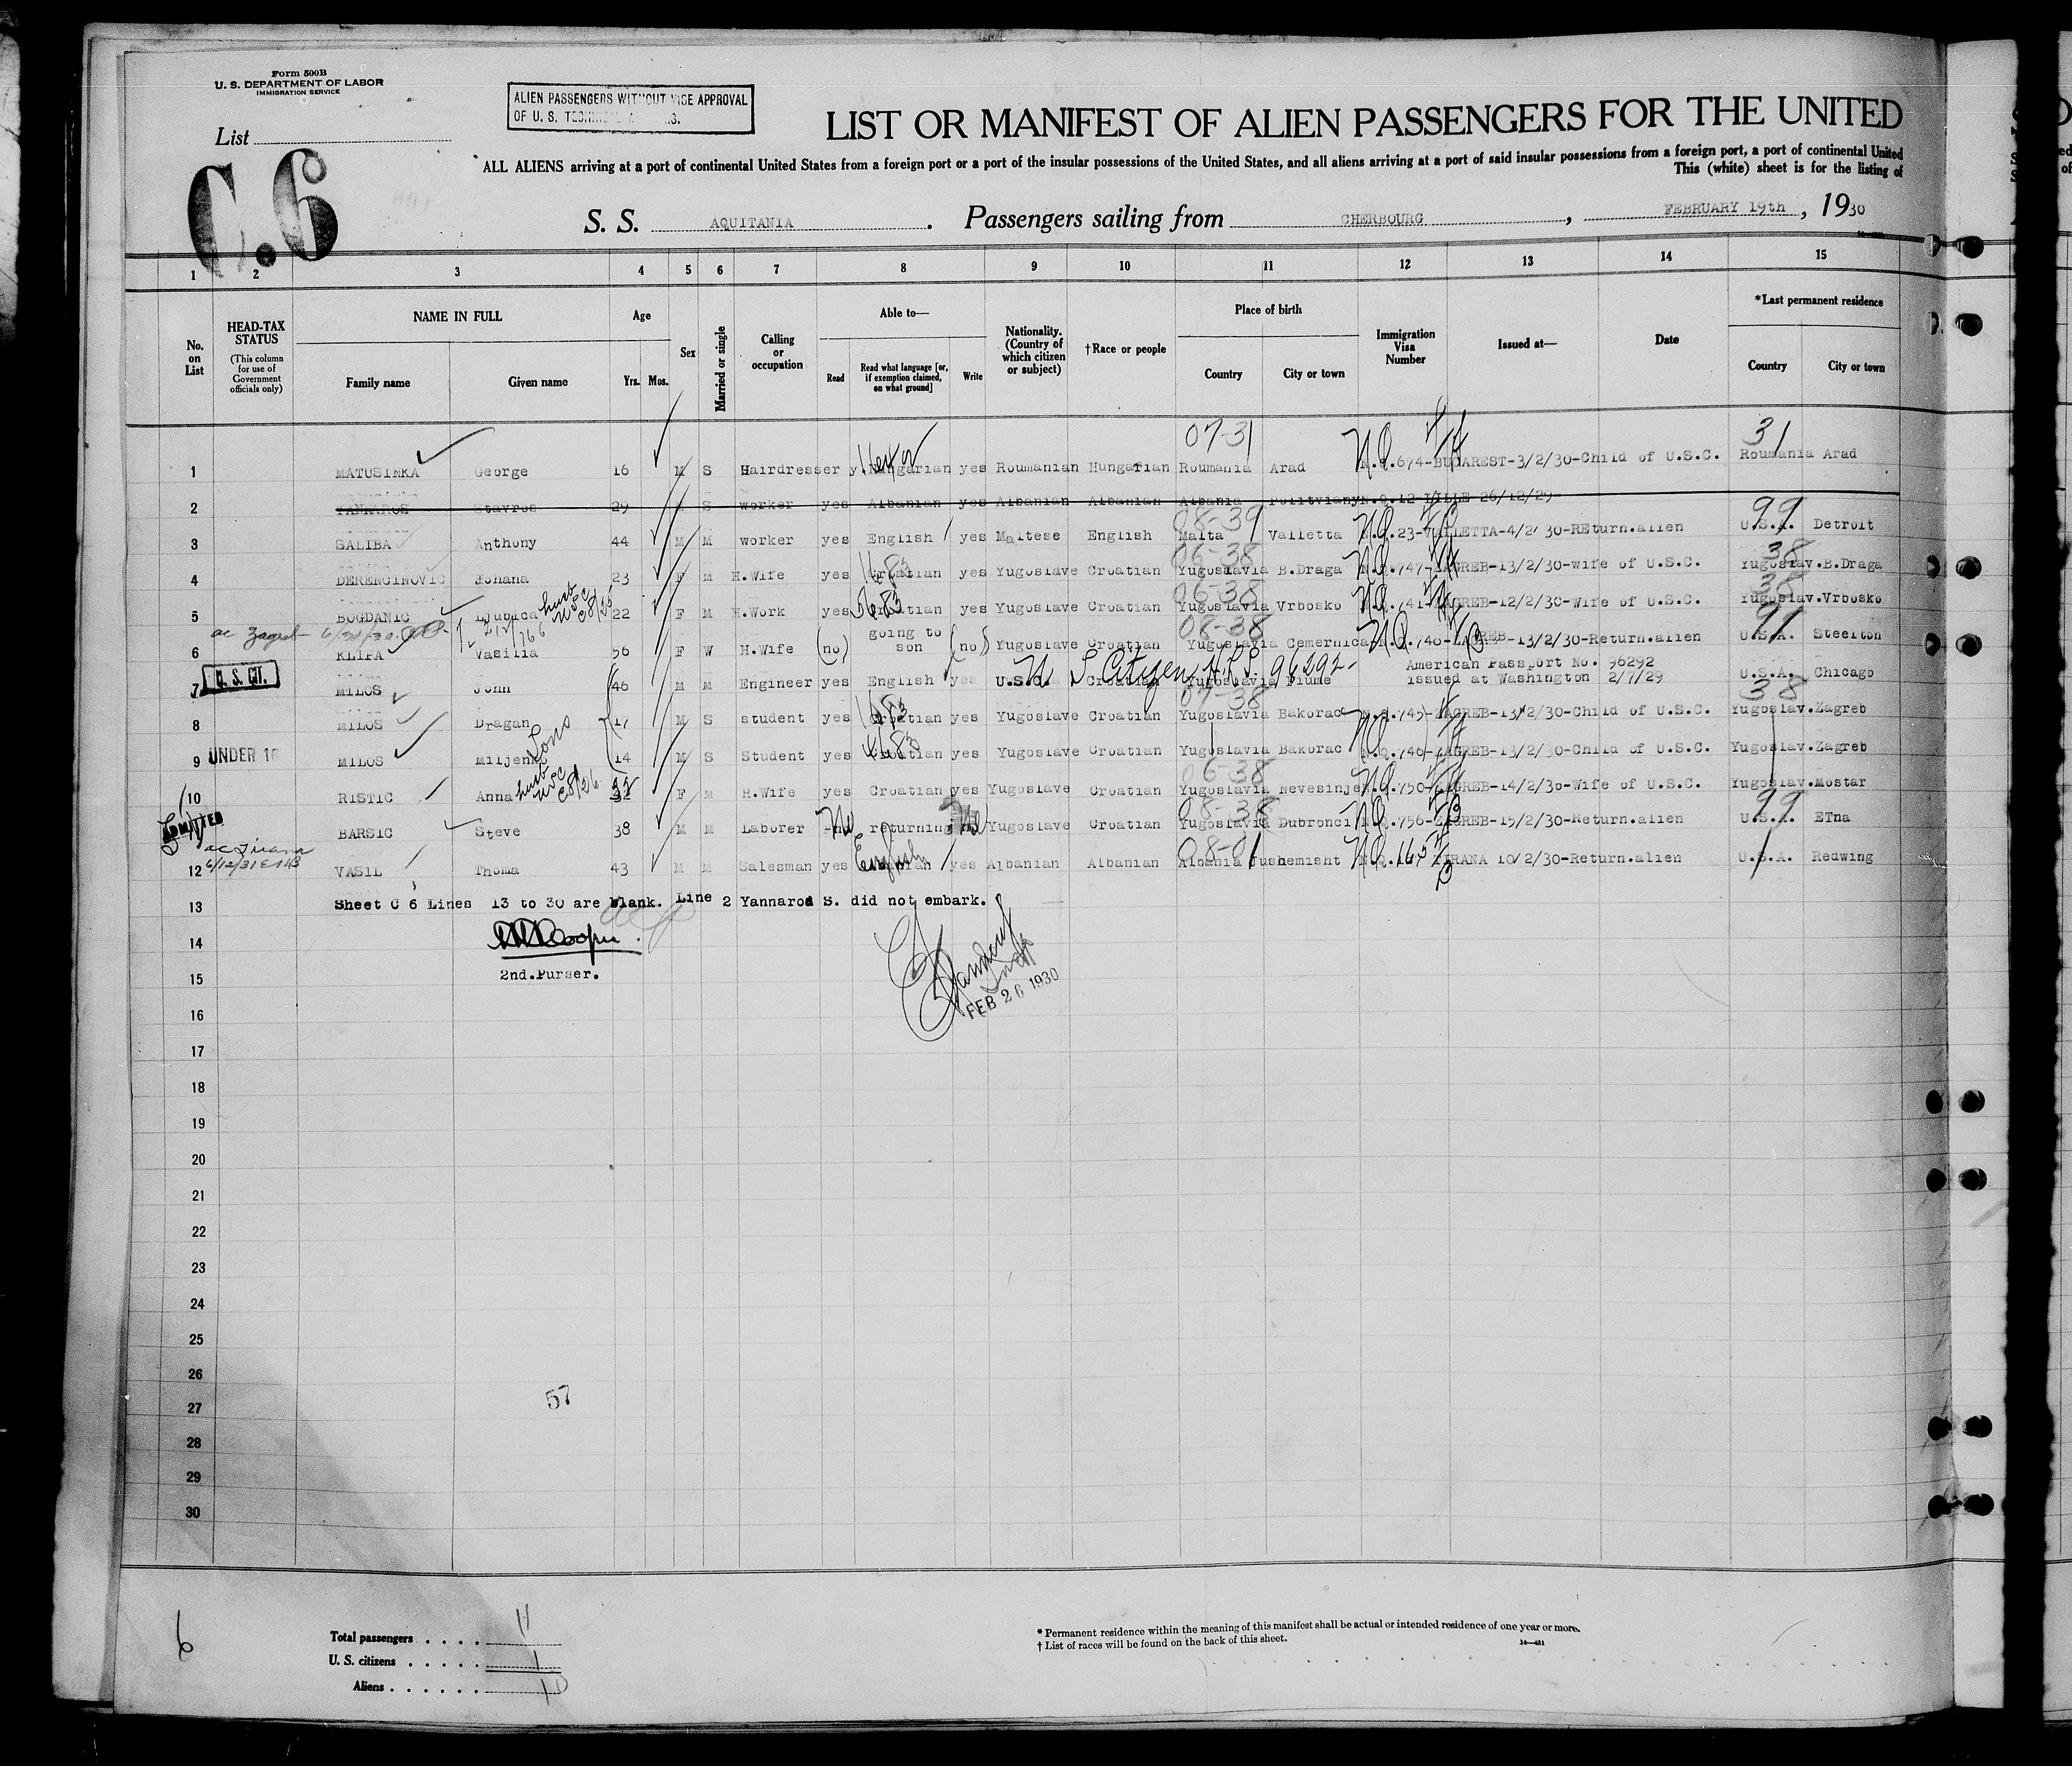 Form 500B
U. S. DEPARTMENT OF LABOR
IMMIGRATION SERVICE
ALIEN PASSENGERS WITHOUT VISE APPROVAL
OF U. S.
List
C.6
LIST OR MANIFEST OF ALIEN PASSENGERS FOR THE UNITED
ALL ALIENS arriving at a port of continental United States from a foreign port or a port of the insular possessions of the United States, and all aliens arriving at a port of said insular possessions from a foreign port, a port of continental United
This (white) sheet is for the listing of
S. S. AQUITANIA. Passengers sailing from CHERBOURG, FEBRUARY 19th, 1930
1 2 3 4 5 6 7 8 9 10 11 12 13 14 15
No. on List
HEAD-TAX STATUS (This column for use of Government officials only)
NAME IN FULL
Family name Given name
Age
Yrs. Mos.
Sex
Married or single
Calling or occupation
Able to—
Read Read what language [or, if exemption claimed, on what ground] Write
Nationality. (Country of which citizen or subject)
†Race or people
Place of birth
Country City or town
Immigration Visa Number
Issued at—
Date
*Last permanent residence
Country City or town
07-31 31
1 MATUSINKA George 16 M S Hairdresser y. Hungarian yes Roumanian Hungarian Roumania Arad N.Q.674-BUCAREST-3/2/30-Child of U.S.C. Roumania Arad
2 YANNAROS Stavros 29 S worker yes Albanian yes Albanian Albanian Albania N.Q.12-LILLE 26/12/29-
08-39 99
3 SALIBA Anthony 44 M M worker yes English yes Maltese English Malta Valletta N.Q.23-VALLETTA-4/2/30-REturn.alien U.S.A. Detroit
06-38 38
4 DERENCINOVIC Johana 23 F M H.Wife yes Croatian yes Yugoslave Croatian Yugoslavia B.Draga N.Q.747-ZAGREB-13/2/30-wife of U.S.C. Yugoslav.B.Draga
06-38 38
5 BOGDANIC Ljubica 22 F M H.Work yes Croatian yes Yugoslave Croatian Yugoslavia Vrbosko N.Q.741-ZAGREB-12/2/30-Wife of U.S.C. Yugoslav.Vrbosko
08-38 99
6 KLIPA Vasilia 56 F W H.Wife (no) going to son (no) Yugoslave Croatian Yugoslavia Cemernica N.Q.740-ZAGREB-13/2/30-Return.alien U.S.A. Steelton
U. S. CIT.
7 MILOS John 46 M M Engineer yes English yes U.S.A. Croatian Yugoslavia Fiume American Passport No. 96292 issued at Washington 2/7/29 U.S.A. Chicago
U. S. Citizen 96292-
07-38 38
8 MILOS Dragan 17 M S student yes Croatian yes Yugoslave Croatian Yugoslavia Bakorac N.Q.745-ZAGREB-13/2/30-Child of U.S.C. Yugoslav.Zagreb
Sons
9 UNDER 16 MILOS Miljenko 14 M S Student yes Croatian yes Yugoslave Croatian Yugoslavia Bakorac N.Q.746-ZAGREB-13/2/30-Child of U.S.C. Yugoslav.Zagreb
06-38
10 RISTIC Anna 32 F M H.Wife yes Croatian yes Yugoslave Croatian Yugoslavia Nevesinje N.Q.750-ZAGREB-14/2/30-Wife of U.S.C. Yugoslav.Mostar
ADMITTED
08-38 99
11 BARSIC Steve 38 M M Laborer no returning no Yugoslave Croatian Yugoslavia Dubronci N.Q.756-ZAGREB-15/2/30-Return.alien U.S.A. ETna
08-01
12 VASIL Thoma 43 M M Salesman yes English yes Albanian Albanian Albania Jushemisht N.Q.165 TIRANA 10/2/30-Return.alien U.S.A. Redwing
13 Sheet C 6 Lines 13 to 30 are blank. Line 2 Yannaros S. did not embark.
14
15 2nd.Purser.
FEB 26 1930
16
17
18
19
20
21
22
23
24
25
26
27 57
28
29
30
6
Total passengers . . . . 11
U. S. citizens . . . . . 1
Aliens . . . . . . 10
* Permanent residence within the meaning of this manifest shall be actual or intended residence of one year or more.
† List of races will be found on the back of this sheet.